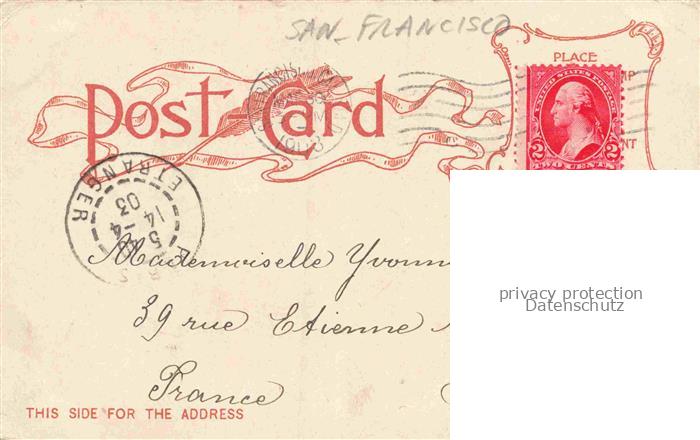 SAN_FRANCISCO
PLACE
Post-Card
UNITED STATES POSTAGE
2 2
TWO CENTS
ETRANGER
5-4
14
03
Mademoiselle Yvonn
39 rue Etienne
France
privacy protection
Datenschutz
THIS SIDE FOR THE ADDRESS